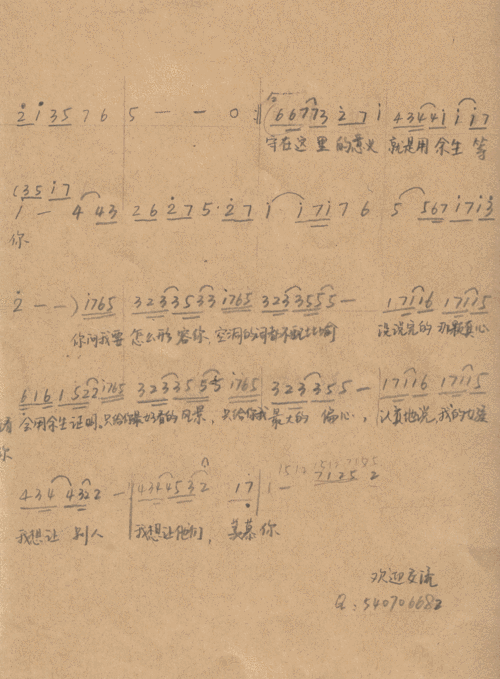 2 1 3 5 7 6 5 - - 0 :‖ (6 6 7 7 3 2 7 1 4 3 4 4 1 1 1 7
守在这里的意义 就是用余生等
(3 5 1 7
1 - 4 4 3 2 6 2 7 5 · 2 7 1 1 7 1 7 6 5 5 6 7 1 7 1 3
你
2 - - ) 1 7 6 5 3 2 3 3 5 3 3 1 7 6 5 3 2 3 3 5 5 5 - 1 7 1 1 6 1 7 1 1 5
你问我要 怎么形容你、空洞的词都不配比喻 没说完的 那颗真心
6 1 6 1 5 2 2 1 7 6 5 3 2 3 3 5 5 5 1 7 6 5 3 2 3 3 5 5 - 1 7 1 1 6 1 7 1 1 5
请 全用余生证明。只给你最好看的风景，只给你我最大的 偏心， 认真地说，我的
你
4 3 4 4 3 2 2 - 4 3 4 4 5 3 2 1 7 1 - 7 1 2 5 2
我想让 别人 我想让他们，羡慕你
欢迎交流
Q：540706682